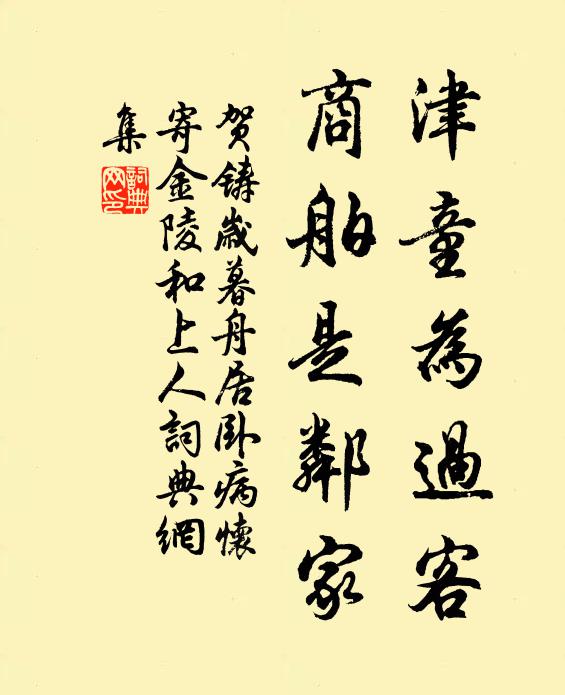 津童為過客
商舶是鄰家
賀鑄歲暮舟居卧病懷
寄金陵和上人詞典網
集
詞典
网印